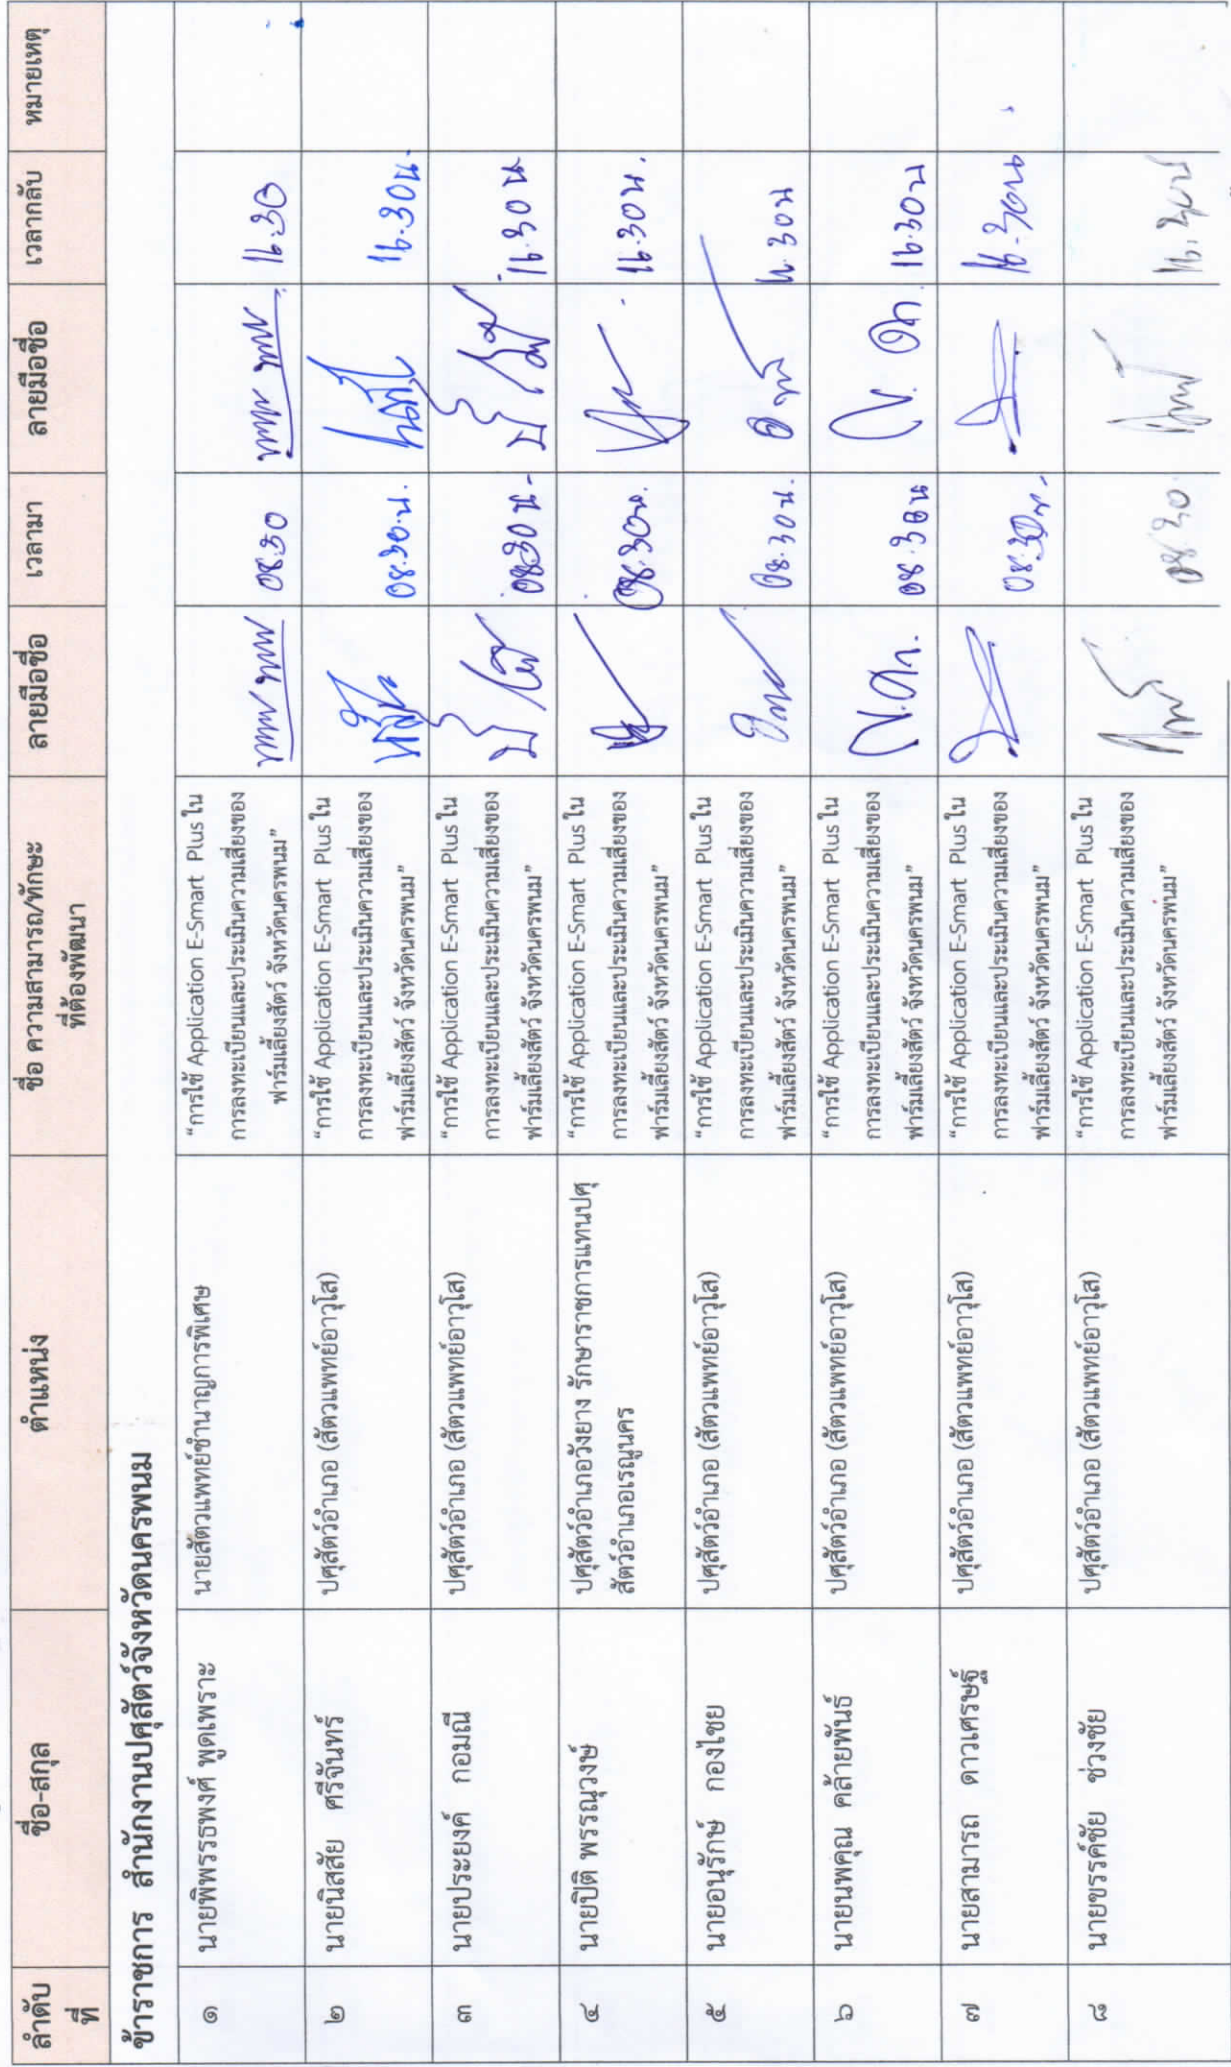 ลำดับ
ที่
ชื่อ-สกุล
ตำแหน่ง
ชื่อ ความสามารถ/ทักษะ
ที่ต้องพัฒนา
ลายมือชื่อ
เวลามา
ลายมือชื่อ
เวลากลับ
หมายเหตุ
ข้าราชการ สำนักงานปศุสัตว์จังหวัดนครพนม
๑
นายพิพรรธพงศ์ พูดเพราะ
นายสัตวแพทย์ชำนาญการพิเศษ
“การใช้ Application E-Smart Plus ใน
การลงทะเบียนและประเมินความเสี่ยงของ
ฟาร์มเลี้ยงสัตว์ จังหวัดนครพนม”
08.30
16.30
๒
นายนิสสัย ศรีจันทร์
ปศุสัตว์อำเภอ (สัตวแพทย์อาวุโส)
“การใช้ Application E-Smart Plus ใน
การลงทะเบียนและประเมินความเสี่ยงของ
ฟาร์มเลี้ยงสัตว์ จังหวัดนครพนม”
08.30น.
16.30น.
๓
นายประยงค์ กอมณี
ปศุสัตว์อำเภอ (สัตวแพทย์อาวุโส)
“การใช้ Application E-Smart Plus ใน
การลงทะเบียนและประเมินความเสี่ยงของ
ฟาร์มเลี้ยงสัตว์ จังหวัดนครพนม”
08.30 น.
16.30 น
๔
นายปิติ พรรณุวงษ์
ปศุสัตว์อำเภอวังยาง รักษาราชการแทนปศุ
สัตว์อำเภอเรณูนคร
“การใช้ Application E-Smart Plus ใน
การลงทะเบียนและประเมินความเสี่ยงของ
ฟาร์มเลี้ยงสัตว์ จังหวัดนครพนม”
08.30น.
16.30น.
๕
นายอนุรักษ์ กองไชย
ปศุสัตว์อำเภอ (สัตวแพทย์อาวุโส)
“การใช้ Application E-Smart Plus ใน
การลงทะเบียนและประเมินความเสี่ยงของ
ฟาร์มเลี้ยงสัตว์ จังหวัดนครพนม”
08.30น.
16.30น
๖
นายนพคุณ คล้ายพันธ์
ปศุสัตว์อำเภอ (สัตวแพทย์อาวุโส)
“การใช้ Application E-Smart Plus ใน
การลงทะเบียนและประเมินความเสี่ยงของ
ฟาร์มเลี้ยงสัตว์ จังหวัดนครพนม”
08.30น
16.30น
๗
นายสามารถ ดาวเศรษฐ์
ปศุสัตว์อำเภอ (สัตวแพทย์อาวุโส)
“การใช้ Application E-Smart Plus ใน
การลงทะเบียนและประเมินความเสี่ยงของ
ฟาร์มเลี้ยงสัตว์ จังหวัดนครพนม”
08.30น.
16.30น
๘
นายขรรค์ชัย ช่วงชัย
ปศุสัตว์อำเภอ (สัตวแพทย์อาวุโส)
“การใช้ Application E-Smart Plus ใน
การลงทะเบียนและประเมินความเสี่ยงของ
ฟาร์มเลี้ยงสัตว์ จังหวัดนครพนม”
08.30
16.30น